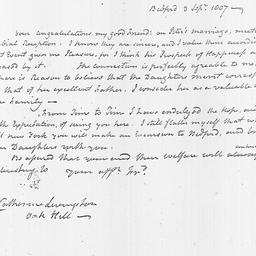 Bedford 3 Septr. 1807 —
Your congratulations, my good Friend, on Peter's marriage, meet a
Reception. I know they are sincere, and I value them accordingly
Event gives me Pleasure, for I think his Prospects of Happiness are
by it. The connection is perfectly agreeable to me,
there is Reason to believe that the Daughters merit
that of her excellent Father. I consider her as a valuable
Family —
From Time to Time I have indulged the Hope, and
the Expectation, of seeing you here. I still flatter myself that
New York you will make an Excursion to Bedford, and
Daughters with you.
Be assured that your and their welfare will always be
to your affte. Frd.
Catharine Livingston
Oak Hill —